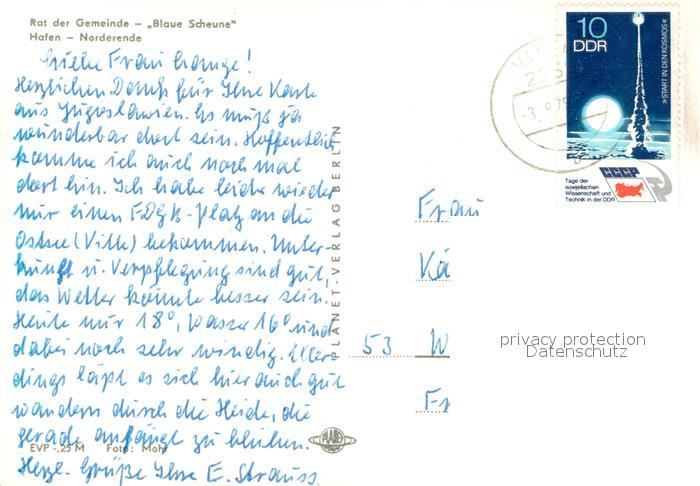 Rat der Gemeinde – „Blaue Scheune"
Hafen – Norderende
Liebe Frau Lange!
Herzlichen Dank für Ihre Karte
aus Jugoslawien. Es muß ja
wunderbar dort sein. Hoffentlich
komme ich auch noch mal
dort hin. Ich habe leider wieder
nur einen FDGB-Platz an die
Ostsee (Vitte) bekommen. Unter-
kunft u. Verpflegung sind gut,
das Wetter könnte besser sein.
Heute nur 18°, Wasser 16° und
dabei noch sehr windig. Aller-
dings läßt es sich hier auch gut
wandern durch die Heide, die
gerade anfängt zu blühen.
Herzl. Grüße Ihre E. Strauss.
EVP -,25 M Foto: Mohr
PLANET-VERLAG BERLIN
PLANET
10
DDR
»START IN DEN KOSMOS«
CCCP
Tage der
sowjetischen
Wissenschaft und
Technik in der DDR
Frau
Kä
53 W
Fr
privacy protection
Datenschutz